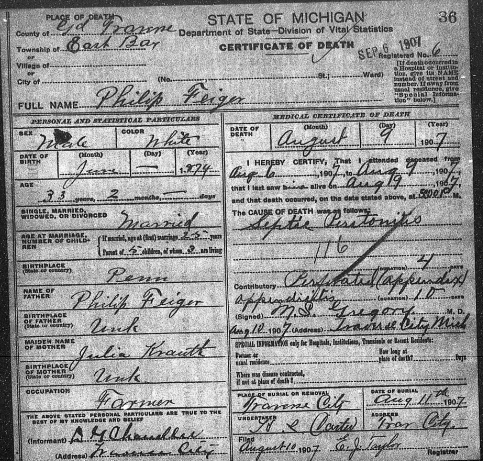 PLACE OF DEATH
STATE OF MICHIGAN
36
County of Gd Traverse
Department of State—Division of Vital Statistics
Township of East Bay
CERTIFICATE OF DEATH
SEP 6 1907
or
Registered No. 6
Village of
or
City of (No. St.; Ward)
[If death occurred in a Hospital or Institution, give its NAME instead of street and number. If away from usual residence, give "Special Information" below.]
FULL NAME Philip Feiger
PERSONAL AND STATISTICAL PARTICULARS
MEDICAL CERTIFICATE OF DEATH
SEX Male
COLOR White
DATE OF DEATH
(Month) August
(Day) 9
(Year) 1907
DATE OF BIRTH
(Month) Jun
(Day) —
(Year) 1874
I HEREBY CERTIFY, That I attended deceased from
Aug 6 1907 to Aug 9 1907
AGE
33 years 2 months — days
that I last saw alive on Aug 9 1907
and that death occurred, on the date stated above, at
SINGLE, MARRIED, WIDOWED, OR DIVORCED Married
The CAUSE OF DEATH was as follows:
Septic Peritonitis
116
AGE AT MARRIAGE, NUMBER OF CHILDREN
If married, age at (first) marriage years
Parent of 5 children, of whom 3 are living
4
BIRTHPLACE
(State or country) Penn
Contributory Perforated (appendix)
appendicitis (DURATION) 10
NAME OF FATHER Philip Feiger
(Signed) Gregory M. D.
BIRTHPLACE OF FATHER
(State or country) Unk
Aug 10 1907 (Address) Traverse City Mich
MAIDEN NAME OF MOTHER Julia Krauth
SPECIAL INFORMATION only for Hospitals, Institutions, Transients or Recent Residents:
Former or usual residence
How long at place of death? Days
BIRTHPLACE OF MOTHER
(State or country) Unk
Where was disease contracted, if not at place of death?
OCCUPATION Farmer
PLACE OF BURIAL OR REMOVAL
Traverse City
DATE OF BURIAL
Aug 11th 1907
THE ABOVE STATED PERSONAL PARTICULARS ARE TRUE TO THE BEST OF MY KNOWLEDGE AND BELIEF
UNDERTAKER
ADDRESS
Trav City.
(Informant)
(Address) City
Filed
August 10 1907 E. J. Taylor